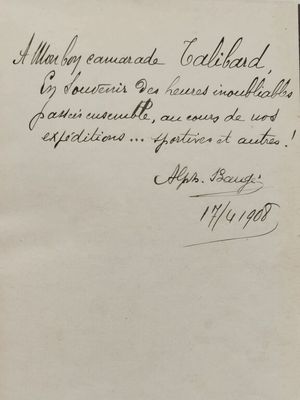 A Mon bon camarade Talibard,
En Souvenir des heures inoubliables
passées ensemble, au cours de nos
expéditions... sportives et autres!
Alph. Baugé
17/4 1908